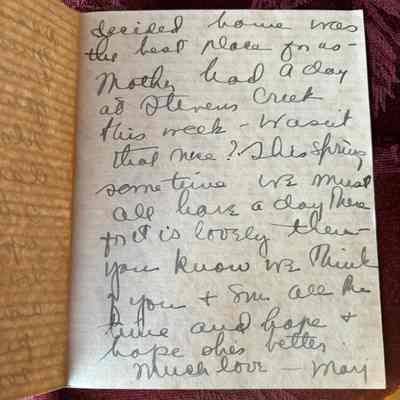 decided home was
the best place for us -
Mother had a day
at Stevens Creek
this week - wasn't
that nice? This spring
sometime we must
all have a day there
for it is lovely then -
you know we think
of you + Sue all the
time and hope +
hope she's better.
Much love - Mary